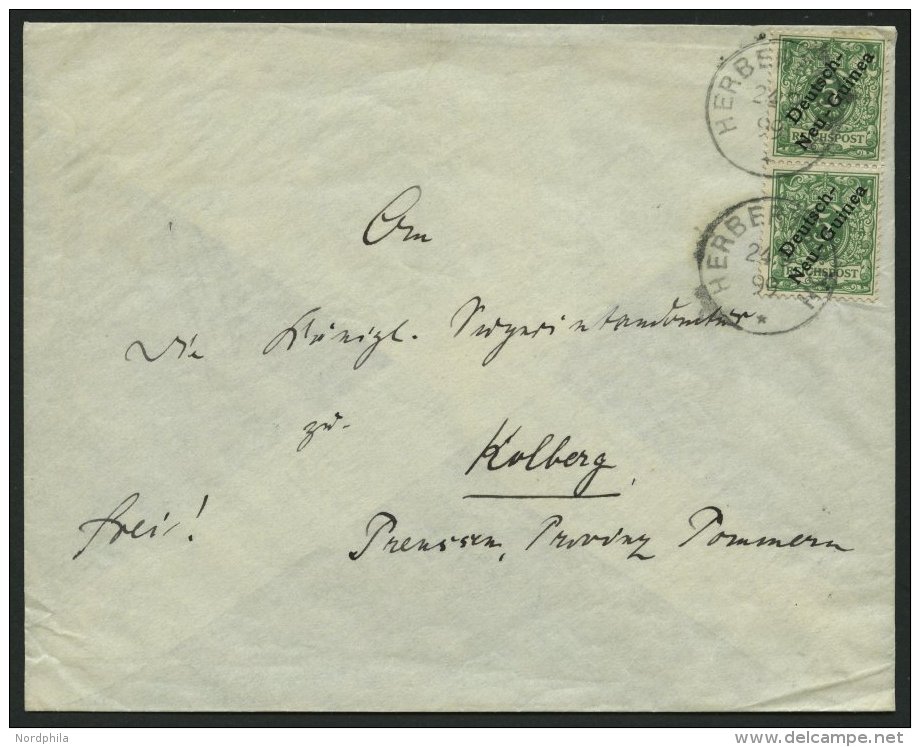 HERBE H
24
99
Deutsch-
Neu-Guinea
REICHSPOST
HERBE H
24
99
Deutsch-
Neu-Guinea
REICHSPOST
An
die Königl. Superintendentur
zu
Kolberg
frei!
Preussen, Provinz Pommern
Nordphila
delcampe.net